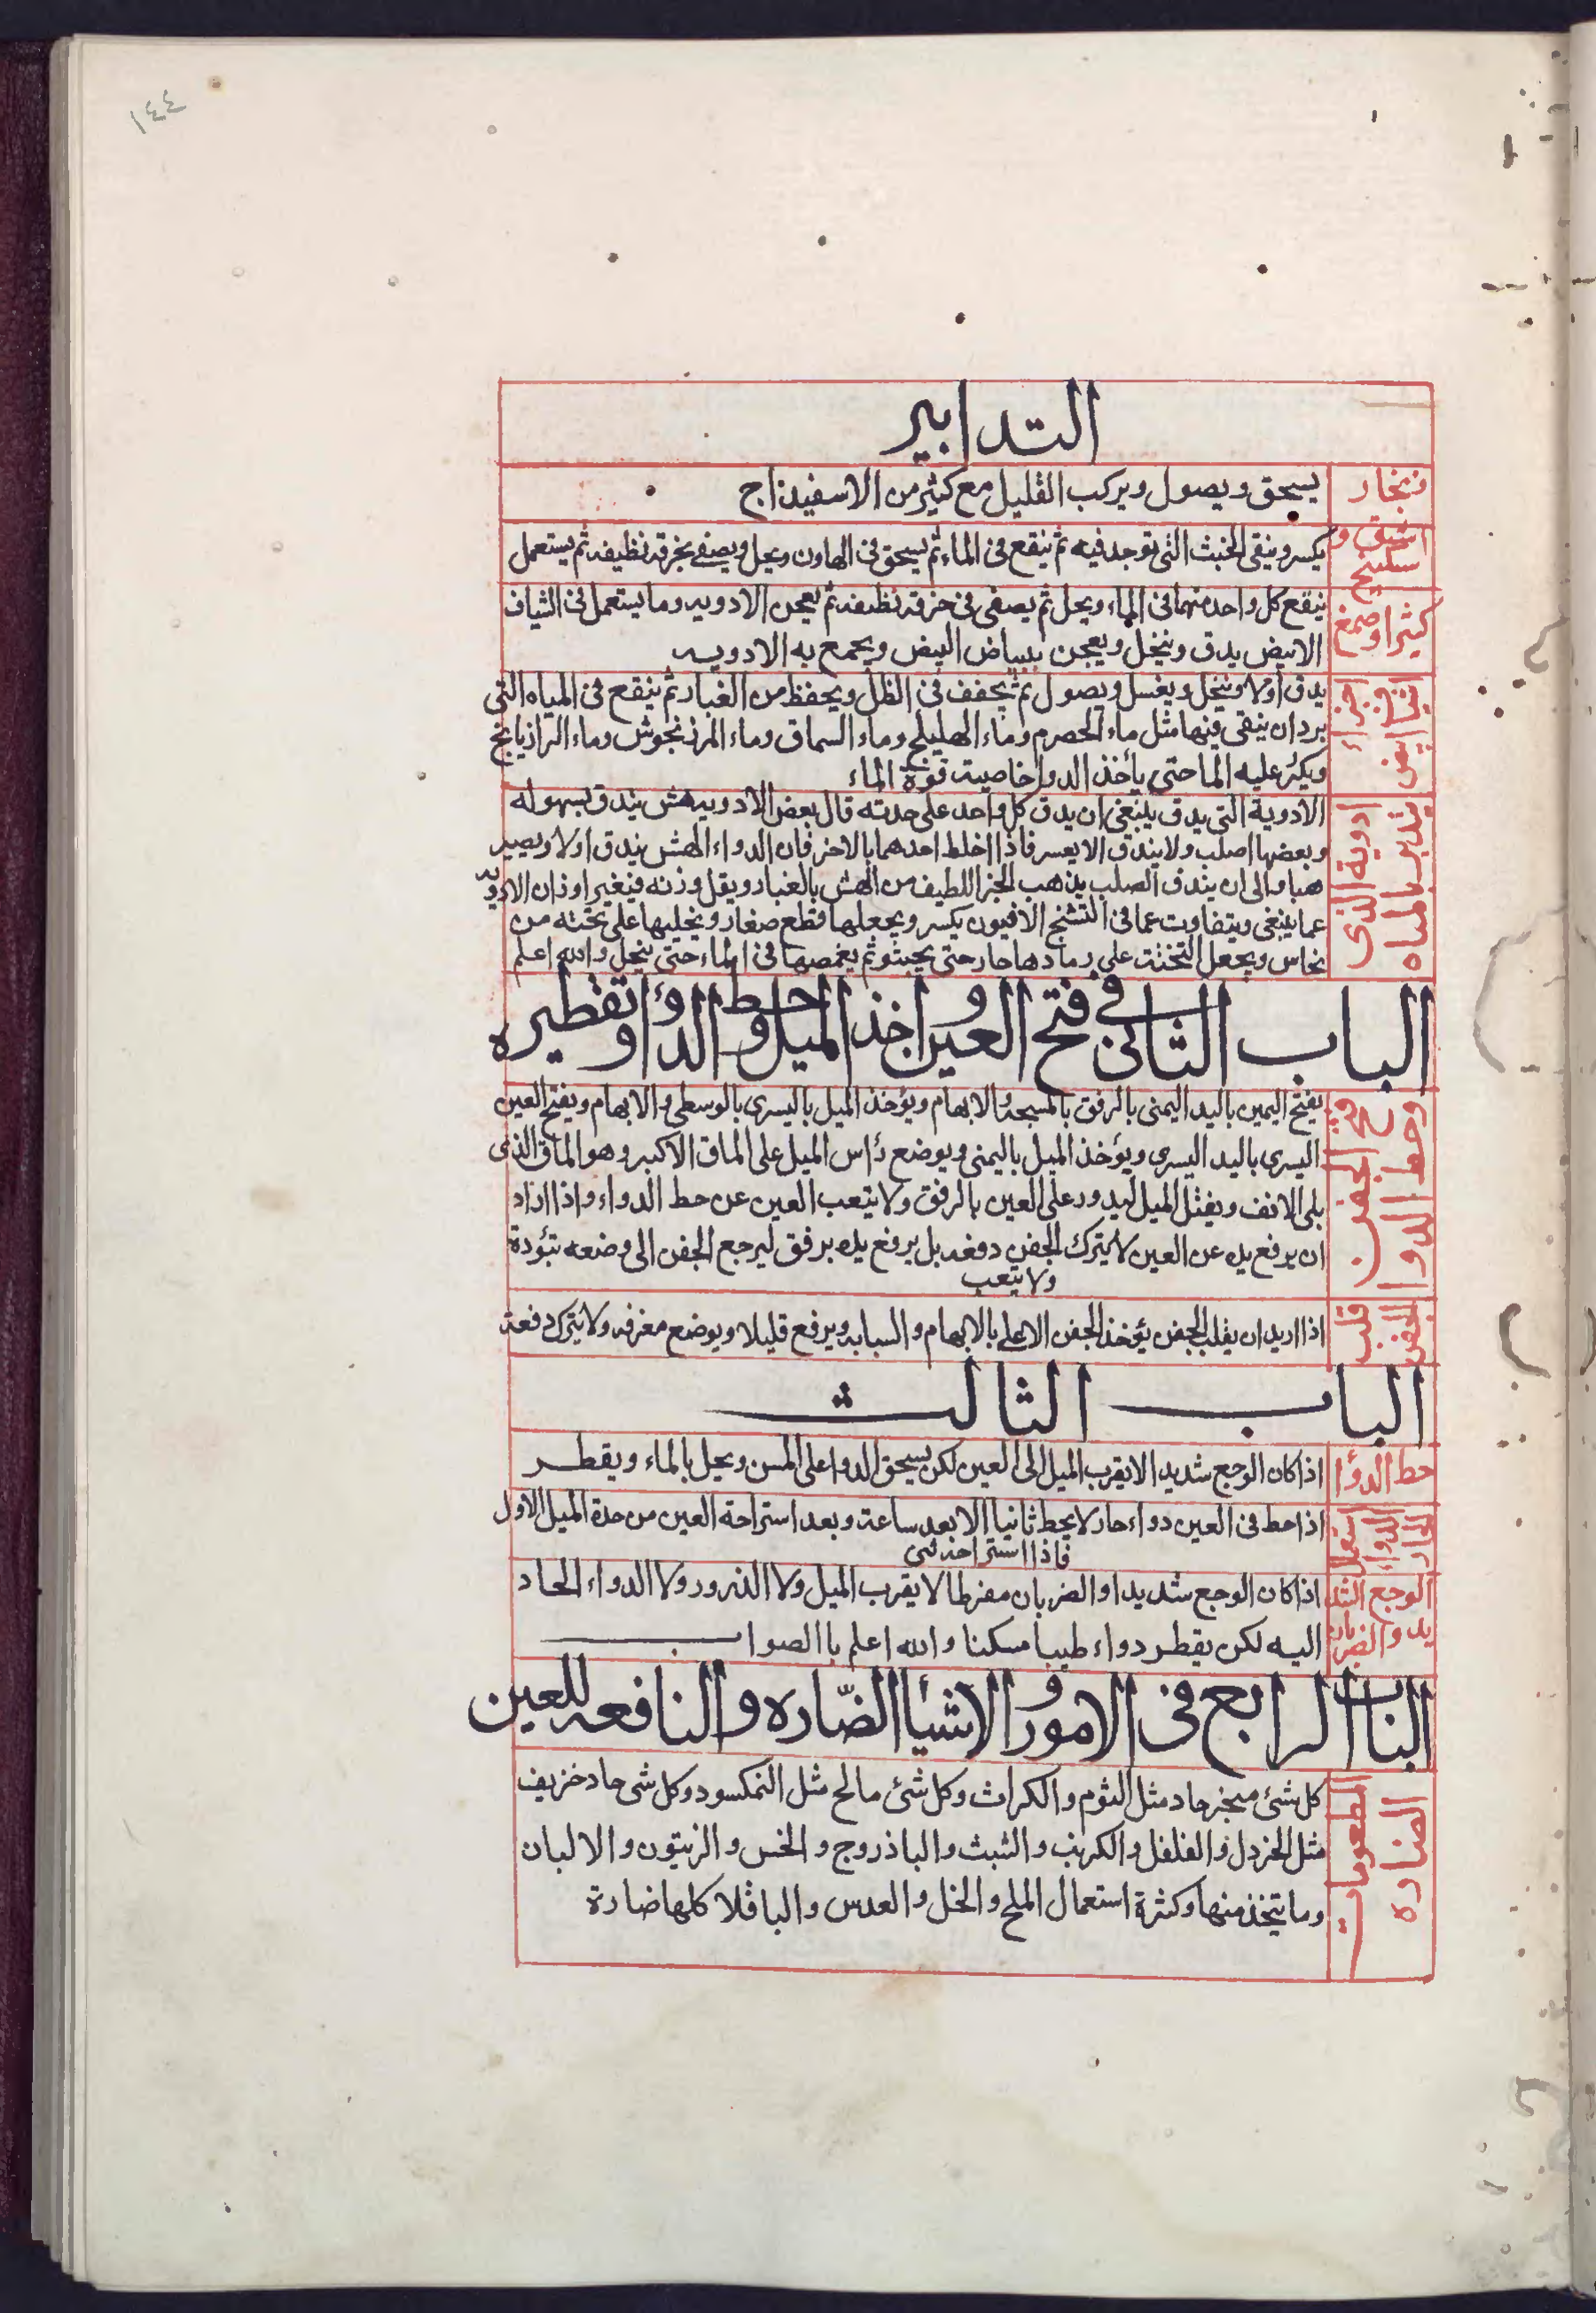 ١٤٤
التدابير
زنجار
يسحق ويصول ويركب القليل مع كثير من الاسفيذاج
اشق و سكبينج
يكسر وينقى الخبث التى توجد فيه ثم ينقع فى الماء ثم يسحق فى الهاون ويحل ويصفى بخرقه نظيفه ثم يستعمل
كثيرا وصمغ
ينقع كل واحد منهما فى الماء ويحل ثم يصفى فى خرقه نظيفه ثم يعجن الادويه وما يستعمل فى الشياف
الابيض يدق وينخل ويعجن ببياض البيض ويجمع به الادويه
يدق اولا وينخل ويغسل ويصول ثم يجفف فى الظل ويحفظ من الغبار ثم ينقع فى المياه التى
يرد ان ينقى فيها مثل ماء الحصرم وماء الهليلج وماء السماق وماء المرزنجوش وماء الرازيانج
ويكثر عليه الما حتى يأخذ الدوا خاصية قوة الماء
تدبير ادوية الذى بالمياه
الادوية التى يدق ينبغى ان يدق كل واحد على حدته قال بعض الادويه هش يندق بسهوله
وبعضها اصلب ولا يندق الا بعسر فاذا اخلط احدهما بالاخر فان الدواء الهش يندق اولا ويصير
هباء والى ان يندق الصلب يذهب الجز اللطيف من الهش بالغبار ويقل وزنه فيتغير اوزان الادويه
عما ينبغى ويتفاوت عما فى التشنج الافيون يكسر ويجعلها قطع صغار ويخليها على تخته من
نحاس ويجعل التختة على رماد ها حار حتى يجبثو ثم يغمصها فى الماء حتى ينحل والله اعلم
الباب الثانى فى فتح العين واخذ الميل وحط الدواء وتقطيره
فتح الجفن وحط الدوا
يفتح اليمين باليد اليمنى بالرفق بالمسبحة والابهام ويؤخذ الميل باليسرى بالوسطى والابهام ويفتح العين
اليسرى باليد اليسرى ويؤخذ الميل باليمنى ويوضع رأس الميل على الماق الاكبر وهو الماق الذى
يلى الانف ويفتل الميل ليدور على العين بالرفق ولا يتعب العين عن حط الدواء واذا اراد
ان يرفع يده عن العين لا يترك الجفن دفعه بل يرفع يده برفق ليرجع الجفن الى وضعه بتؤدة
ولا يتعب
قلب الجفن
اذا اريد ان يقلب الجفن يؤخذ الجفن الاعلى بالابهام والسبابه ويرفع قليلا ويوضع مغرفه ولا يترك دفعة
الباب الثالث
حط الدوا
اذا كان الوجع شديدا لا يقرب الميل الى العين لكن يسحق الدوا على المسن ويحل بالماء ويقطر
استعمل الدواء الحار
اذا حط فى العين دواء حار لا يحط ثانيا الا بعد ساعة وبعد استراحة العين من حدة الميل الاول
فاذا استراحة ثنى
الوجع الشديد والضربان
اذا كان الوجع شديدا والضربان مفرطا لا يقرب الميل ولا الذرور ولا الدواء الحاد
اليه لكن يقطر دواء طيبا مسكنا والله اعلم باالصواب
الباب الرابع فى الامور والاشيأ الضّاره والنافعه للعين
المطعومات الضاره
كل شئ مبخر حاد مثل الثوم والكراث وكل شئ مالح مثل النمكسود وكل شى حاد خريف
مثل الخردل والفلفل والكرنب والشبث والباذروج والخس والزيتون والالبان
وما يتخذ منها وكثرة استعمال الملح والخل والعدس والباقلا كلها ضارة